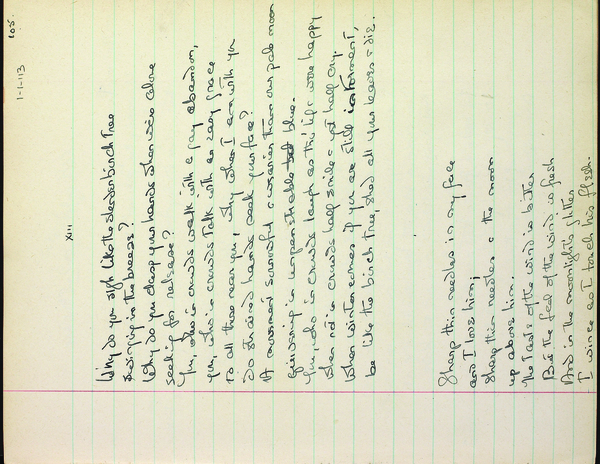 105.
1-1-113
XIII
Why do you sigh like the slender birch tree
swinging in the breeze?
Why do you clasp your hands when we're alone
seeking for release?
You, who in crowds walk with a gay abandon,
you, who in crowds talk with an easy grace
to all those near you, why when I am with you
do hands seek your face?
A movement sorrowful & wearier than our pale moon
giving up in impenetrable blue.
You, who in crowds laugh as tho' life were happy
when not in crowds half smile & yet half cry.
When winter comes if you are still in torment,
be like the birch tree, shed all your leaves & die.
Sharp thin needles in my face
and I love him;
Sharp thin needles & the moon
up above him.
The taste of the wind is bitter
But the feel of the wind is fresh
And in the moonlights glitter
I wince as I touch his flesh.